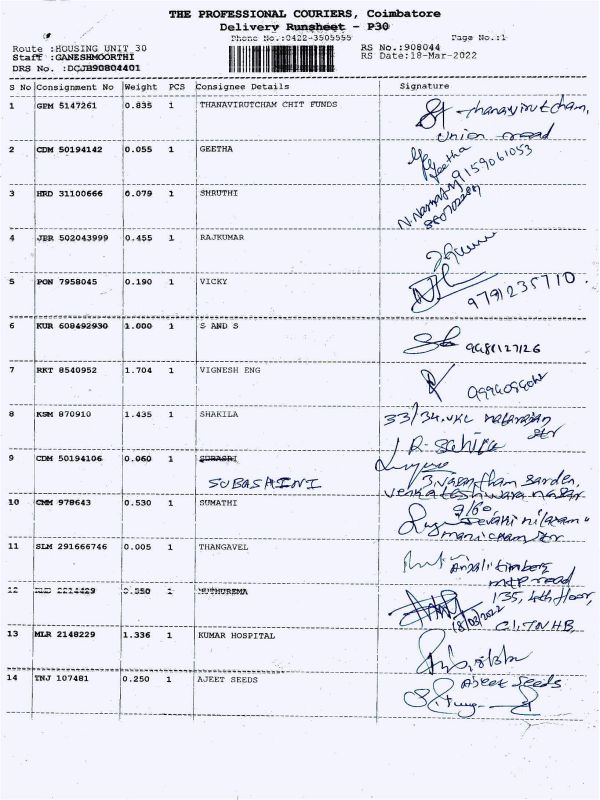 THE PROFESSIONAL COURIERS, Coimbatore
Delivery Runsheet - P30
Phone No.:0422-3505555 Page No.:1
Route :HOUSING UNIT 30 RS No.:908044
Staff :GANESHMOORTHI RS Date:18-Mar-2022
DRS No. :DCJB90804401
S No Consignment No Weight PCS Consignee Details Signature
1 GPM 5147261 0.835 1 THANAVIRUTCHAM CHIT FUNDS thanavirutcham,
union road
2 CDM 50194142 0.055 1 GEETHA Geetha
9159061053
3 HRD 31100666 0.079 1 SHRUTHI
4 JBR 502043999 0.455 1 RAJKUMAR
5 PON 7958045 0.190 1 VICKY 9791235710
6 KUR 608492930 1.000 1 S AND S 9488127126
7 RKT 8540952 1.704 1 VIGNESH ENG
8 KSM 870910 1.435 1 SHAKILA 33/34.VKL natarajan
str
9 CDM 50194106 0.060 1 SUBASRI
SUBASHINI
garden,
venkateshwara nagar
10 CMM 978643 0.530 1 SUMATHI 9/60
11 SLM 291666746 0.005 1 THANGAVEL Anjali timbers
mtp road
12 2214429 0.550 1 MUTHUREMA 135, 4th floor,
18/03/2022 G1.TNHB,
13 MLR 2148229 1.336 1 KUMAR HOSPITAL
14 TNJ 107481 0.250 1 AJEET SEEDS Ajeet Seeds